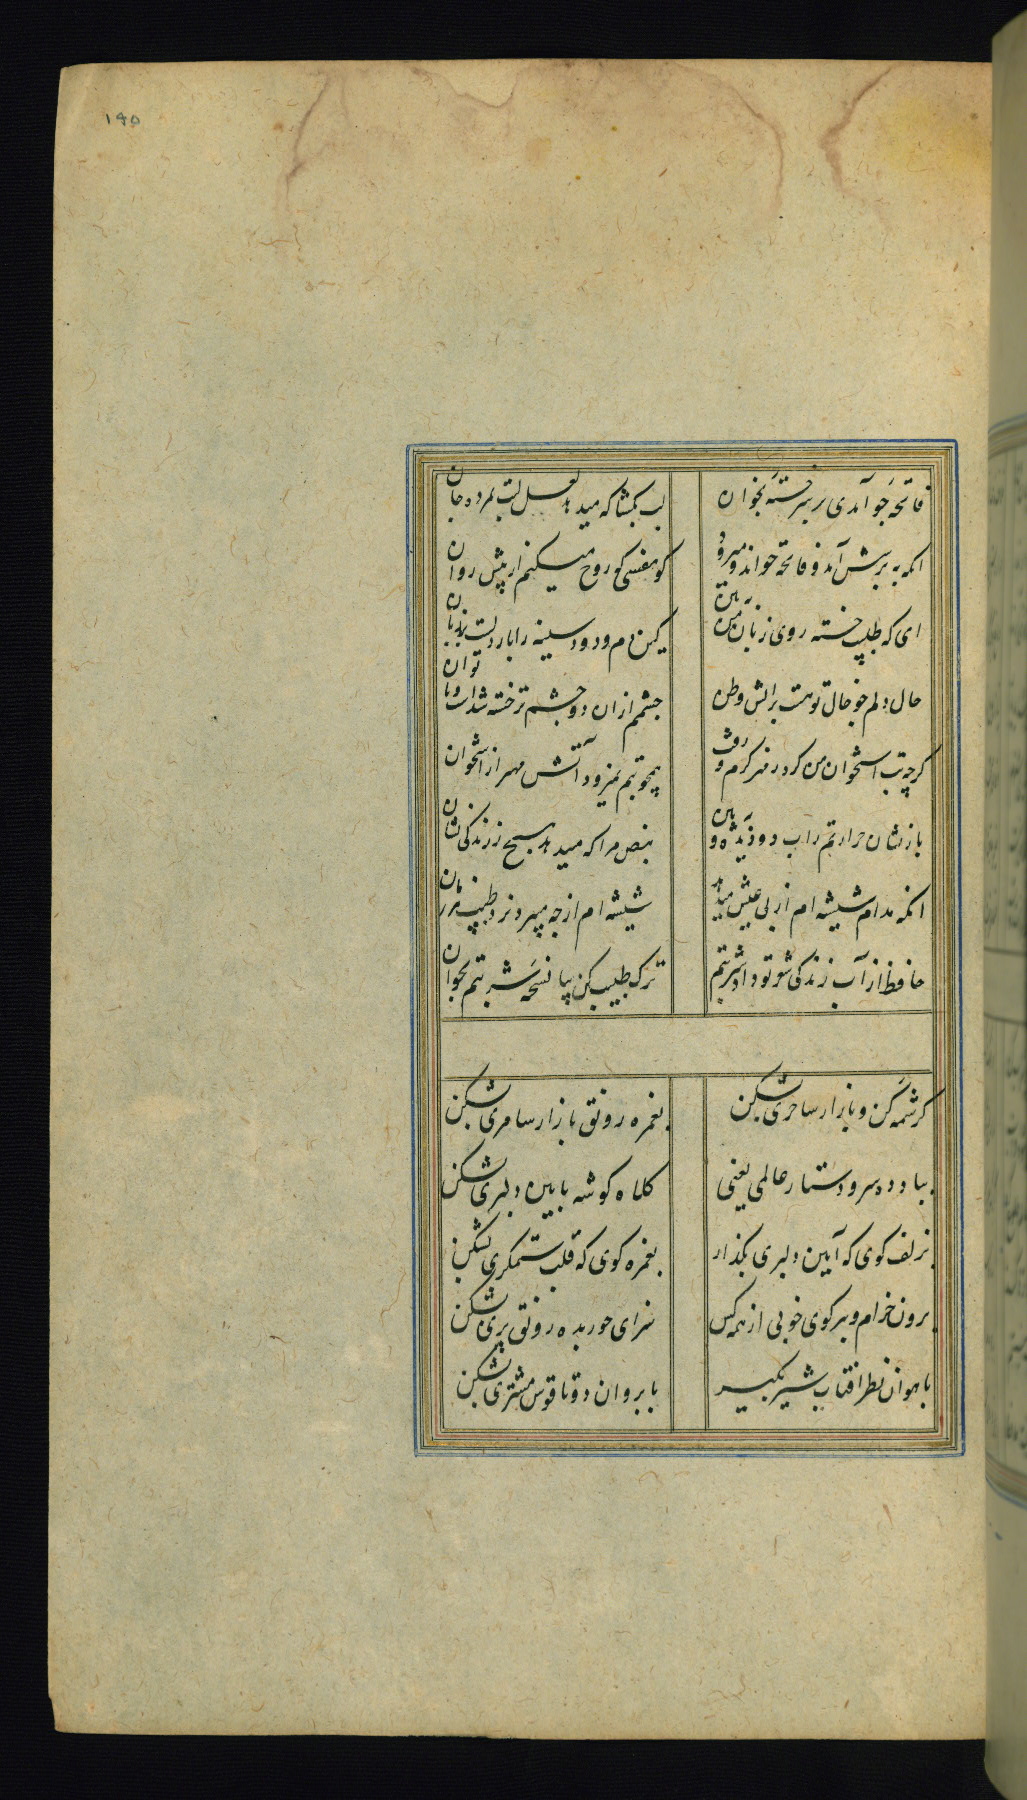 ۱۹۵
فاتحه جو آمدی بر سر خسته بخوان
لب بکشا که میدهد لعل لبت بمرده جان
انکه به پرسش آمد و فاتحه خواند و میرود
کو نفسی که روح میکنم از پیش روان
ای که طبیب خسته روی زبان من به بین
کین دم و دود سینه را بار دلست بر زبان
حال دلم جو خال تو هست بر آتش وطن
جشمم از ان دو جشم تو خسته شداست و ناتوان
کرچه تب استخوان من کرد ز مهر کرم و رفت
همچو تبم نمیرود آتش مهر از استخوان
باز نشان حرارتم ز آب دو دیده و به بین
نبض مرا که میدهد هیچ ز زندکی نشان
انکه مدام شیشه ام از پی عیش میدهد
شیشه ام از جه میبرد نزد طبیب هر زمان
حافظ از آب زندکی شعر تو داد شربتم
ترک طبیب کن بیا نسخه شربتم بخوان
کرشمه کن و بازار ساحری بشکن
بغمزه رونق بازار سامری بشکن
بباد ده سر و دستار عالمی یعنی
کلاه کوشه بایین دلبری بشکن
بزلف کوی که آیین دلبری بکذار
بغمزه کوی که قلب ستمکری بشکن
برون خرام و ببر کوی خوبی از همه کس
سزای حور بده رونق پری بشکن
باهوان نظر افتاب شیر بکیر
بابروان دوتا قوس مشتری بشکن